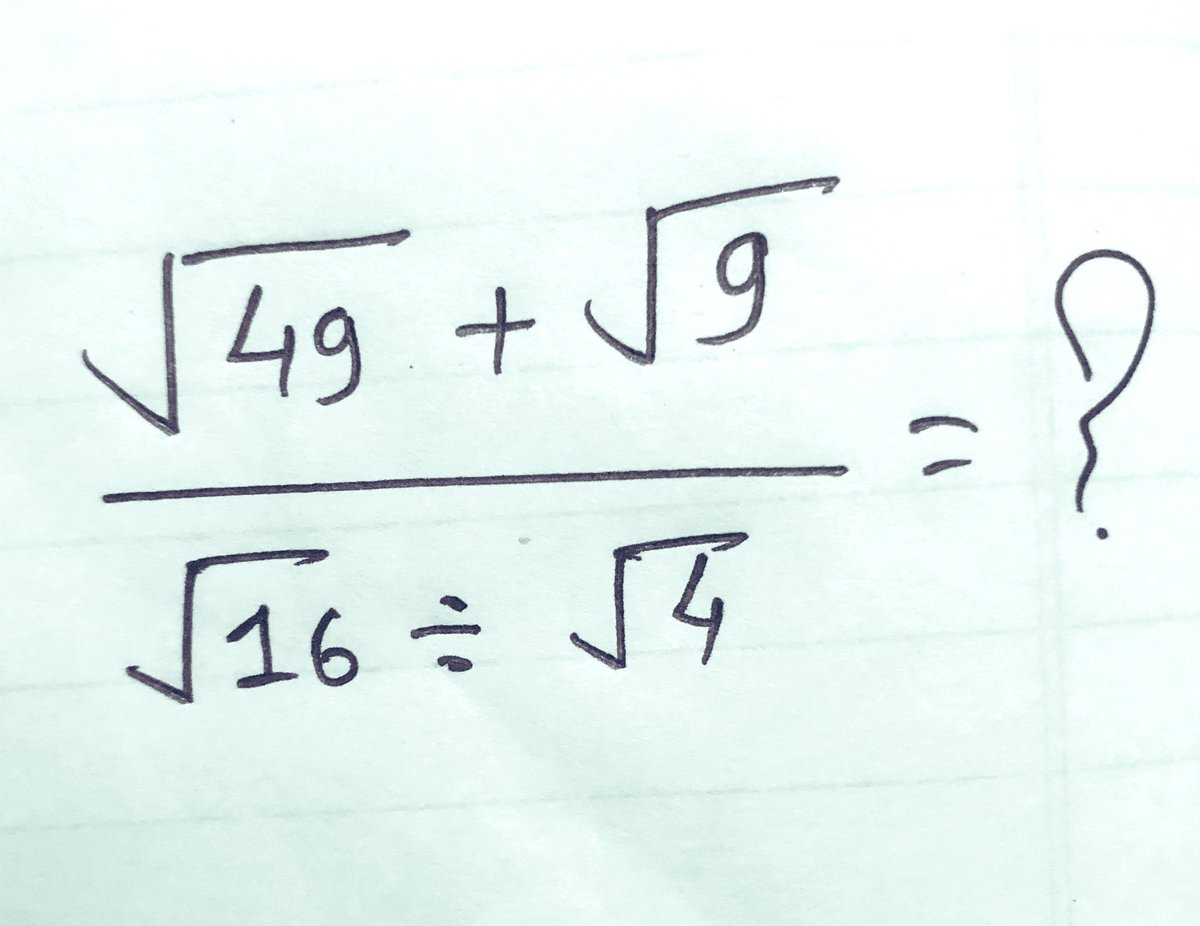 √49 + √9
= ?
√16 ÷ √4